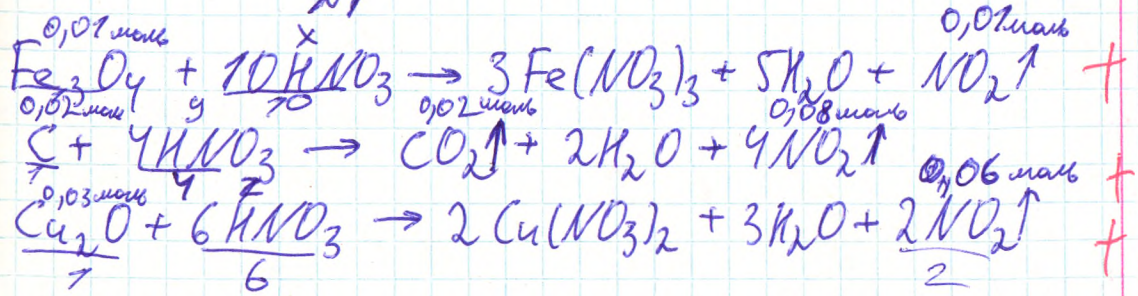 0,01 моль x 0,01 моль
Fe₃O₄ + 10HNO₃ → 3Fe(NO₃)₃ + 5H₂O + NO₂↑ +
10
0,02 моль y 0,02 моль 0,08 моль
C + 4HNO₃ → CO₂↑ + 2H₂O + 4NO₂↑ +
1 4
0,03 моль z 0,06 моль
Cu₂O + 6HNO₃ → 2Cu(NO₃)₂ + 3H₂O + 2NO₂↑ +
1 6 2